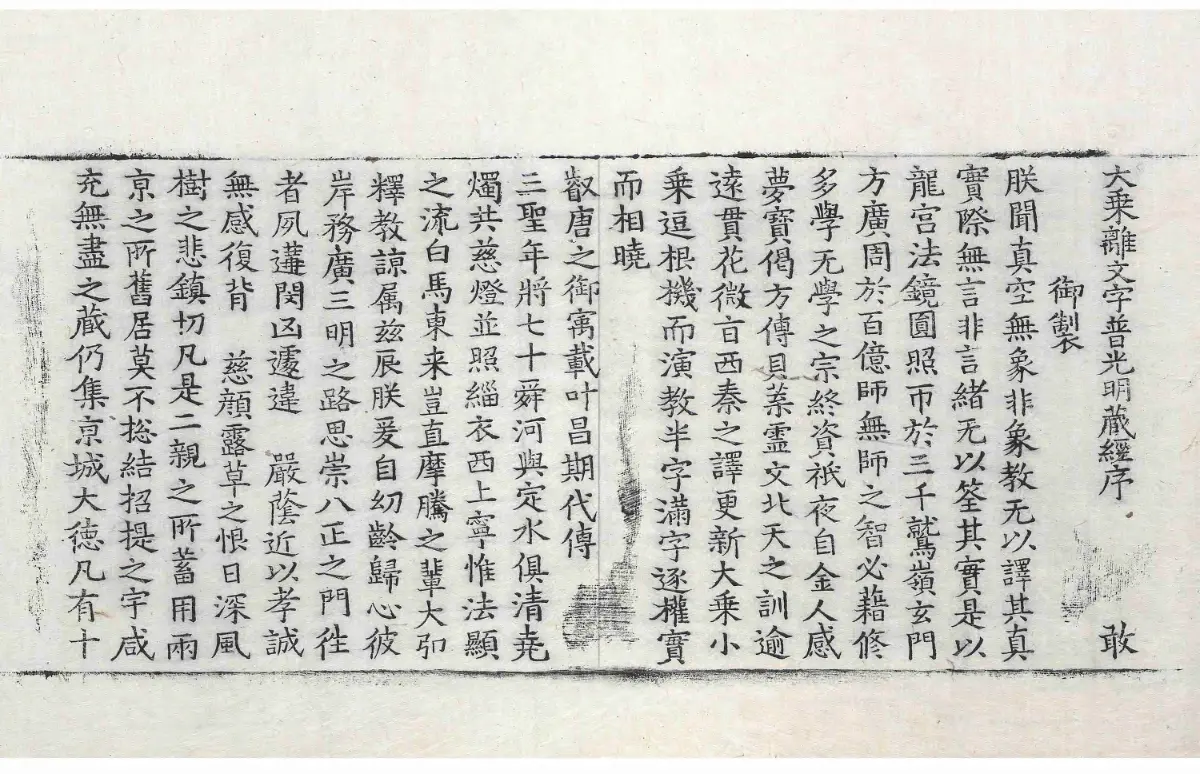 大乗離文字普光明藏經序 敢
御製
朕聞真空無象非象教无以譯其真
實際無言非言緒无以筌其實是以
龍宫法鏡圓照帀於三千鷲嶺玄門
方廣周於百億師無師之智必藉修
多學无學之宗終資祇夜自金人感
夢寶偈方傳貝葉靈文北天之訓逾
遠貫花微言西秦之譯更新大乗小
乗逗根機而演教半字滿字逐權實
而相曉
叡唐之御㝢載叶昌期代傳
三聖年將七十舜河與定水俱清堯
燭共慈燈並照緇衣西上寧惟法顯
之流白馬東来豈直摩騰之輩大弘
釋教諒属兹辰朕爰自幼齡歸心彼
岸務廣三明之路思崇八正之門往
者夙遘閔凶遽違 嚴蔭近以孝誠
無感復背 慈顔露草之恨日深風
樹之悲鎮切凡是二親之所蓄用兩
京之所舊居莫不捴結招提之宇咸
充無盡之藏仍集京城大德凡有十